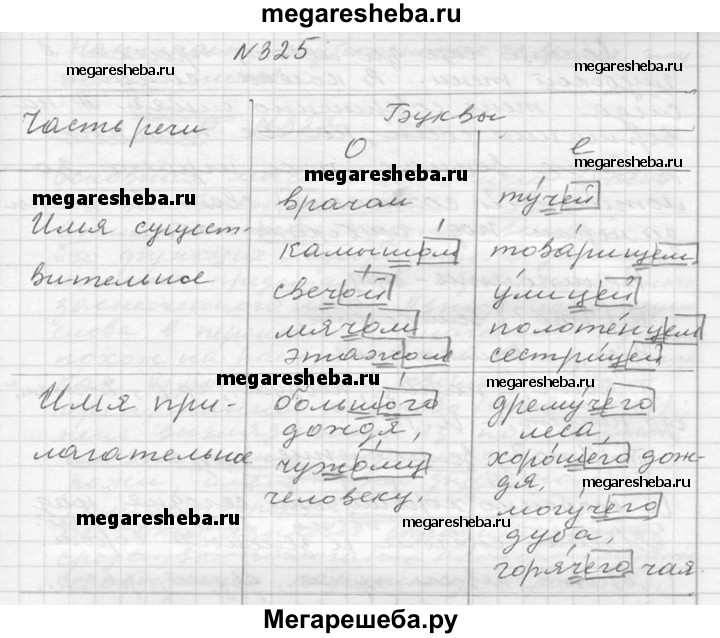 megaresheba.ru
№325
megaresheba.ru
megaresheba.ru
Часть речи
Буквы
о
е
megaresheba.ru
megaresheba.ru
megaresheba.ru
Имя сущест-
вительное
врачом
камышом
свечой
мячом
этажом
тучей
товарищем
улицей
полотенцем
сестрицей
megaresheba.ru
megaresheba.ru
Имя при-
лагательное
большого
дождя,
чужому
человеку.
дремучего
леса,
хорошего дож-
дя,
могучего
дуба,
горячего чая
megaresheba.ru
megaresheba.ru
megaresheba.ru
Мегарешеба.ру